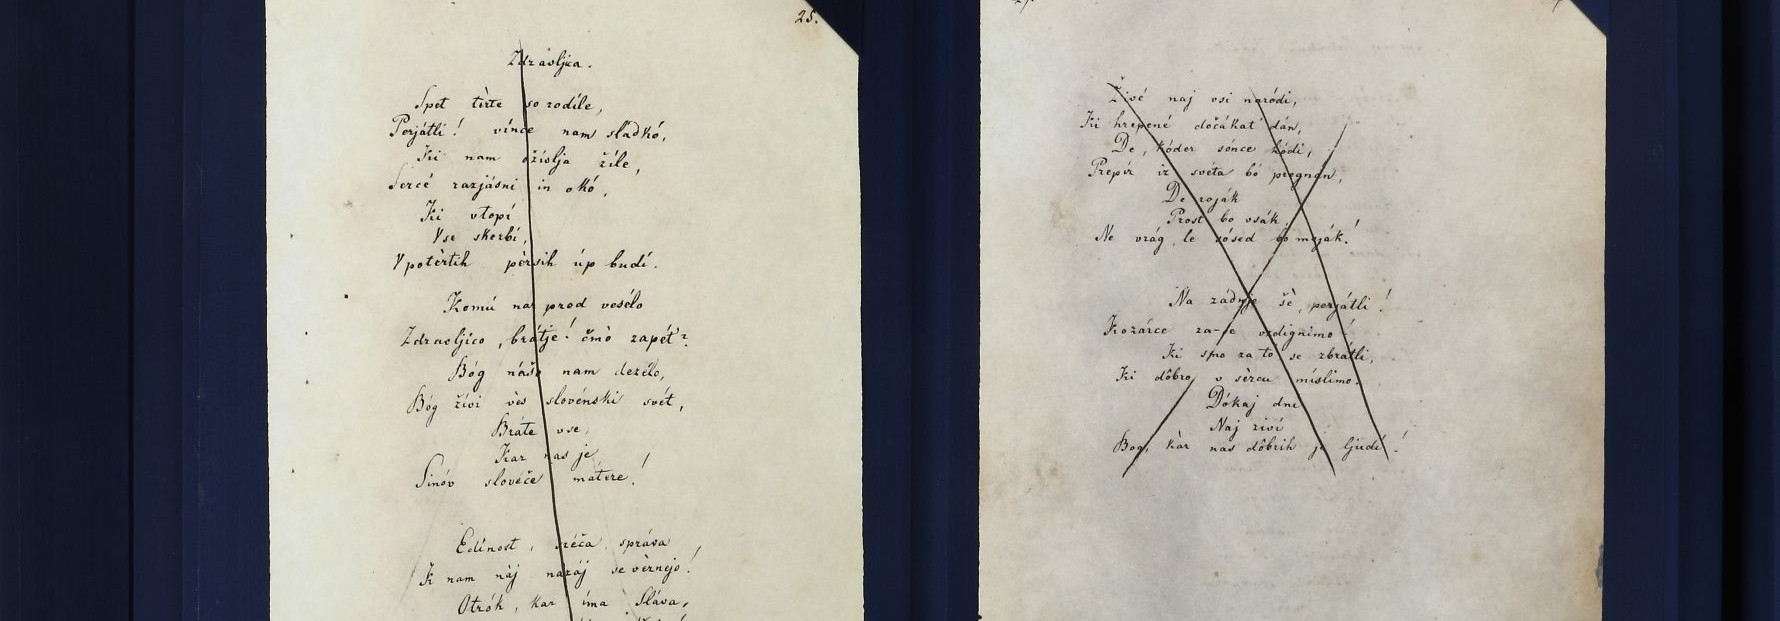 25.
Zdravljica.
Spet tèrte so rodíle,
Perjátli! vínce nam sladkó,
Ki nam ožívlja žíle,
Sercé razjásni in okó,
Ki vtopí
Vse skerbí,
V potèrtih pèrsih úp budí.
Komú nar pred vesélo
Zdravljíco, brátje! čmò zapét'?
Bóg nášo nam dezélo,
Bóg žívi vès slovénski svét,
Bráte vse,
Kar nas je
Sinóv slovéče mátere!
Edínost, sréča, správa
K nam nàj nazáj se vèrnejo!
Otrók, kar íma Sláva,
Živé naj vsi naródi,
Ki hrepené dočákat' dán,
De, kóder sónce hódi,
Prepír iz svéta bó pregnán,
De roják
Prost bo vsák,
Ne vrág, le sósed bo meják!
Na zádnje šè, perjátli!
Kozárce za-se vzdignimo
Ki smo za tó se zbrátli,
Ki dôbro v sèrcu míslimo.
Dókaj dni
Naj živí
Bog, kàr nas dôbrih je ljudí!